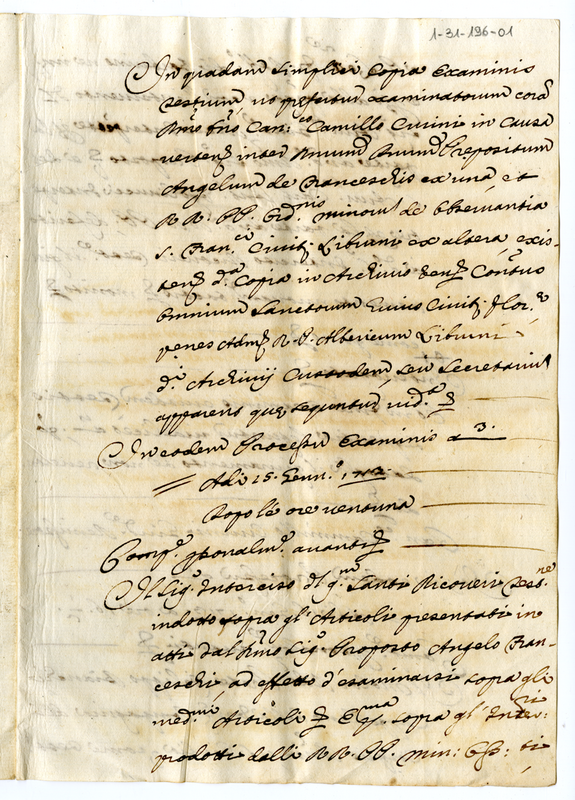 1-31-196-01
In quadam simplici Copia Examinis
testium, ut prefertur examinatorum corã
Rmo. Dno Can:co Camillo Curini in causa
verten̄ inter Rmum Dnum Prepositum
Angelum de Franceschis ex una, et
RR. PP. Ord:nis minorũ de Observantia
S. Fran:ci Civit: Liburni ex altera, exis-
ten̄ d:a Copia in Archivio Ven: Contus
Omnium Sanctorum huius Civit: Flor:ae
penes Adm: R. P. Albericum Liburni
d:i Archivij Custodem, seu Secretarium
apparent que sequuntur vid:t
In eodem Processu Examinis a 3.
Adi 15. Genn:o
Dopo le ore ventuna
Comp:e personalm:e avanti
Il Sig:r Interciso del q:m Santi Ricoveri test:ne
indotto sopra gl'Articoli presentati in
atti dal Rmo Sig:r Proposto Angelo Fran-
ceschi, ad effetto d'esaminarsi sopra gli
med:mi Articoli sopra gl'Inter:ri
prodotti dalli RR. PP. Min: Oss: ti